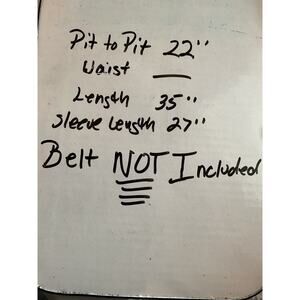 Pit to Pit 22"
Waist —
Length 35"
Sleeve Length 27"
Belt NOT Included